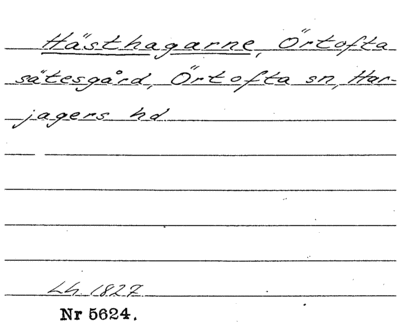 Hästhagarne, Örtofta
sätesgård, Örtofta sn, Har-
jagers hd
Lh 1827
Nr 5624.